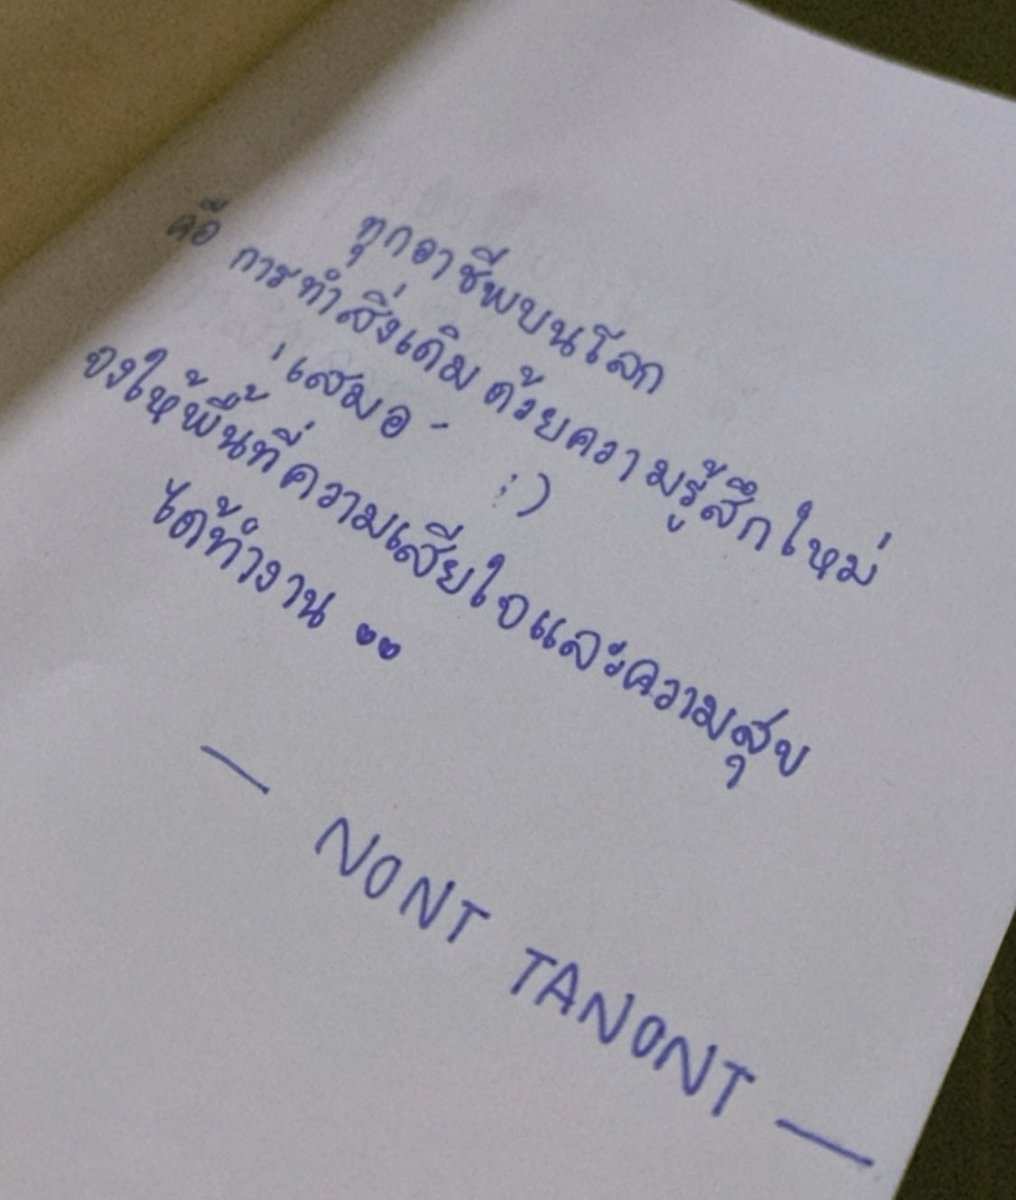 ทุกอาชีพบนโลก
คือ การทำสิ่งเดิม ด้วยความรู้สึกใหม่
'เสมอ' :)
จงให้พื้นที่ความเสียใจและความสุข
ได้ทำงาน ••
— NONT TANONT —